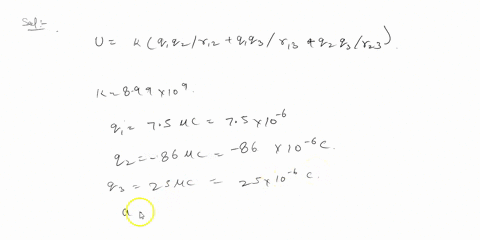 Sol:-
U = K (q₁q₂/r₁₂ + q₁q₃/r₁₃ + q₂q₃/r₂₃).
K = 8.99 × 10⁹.
q₁ = 7.5 μC = 7.5 × 10⁻⁶
q₂ = -86 μC = -86 × 10⁻⁶ C.
q₃ = 25 μC = 25 × 10⁻⁶ C.
a